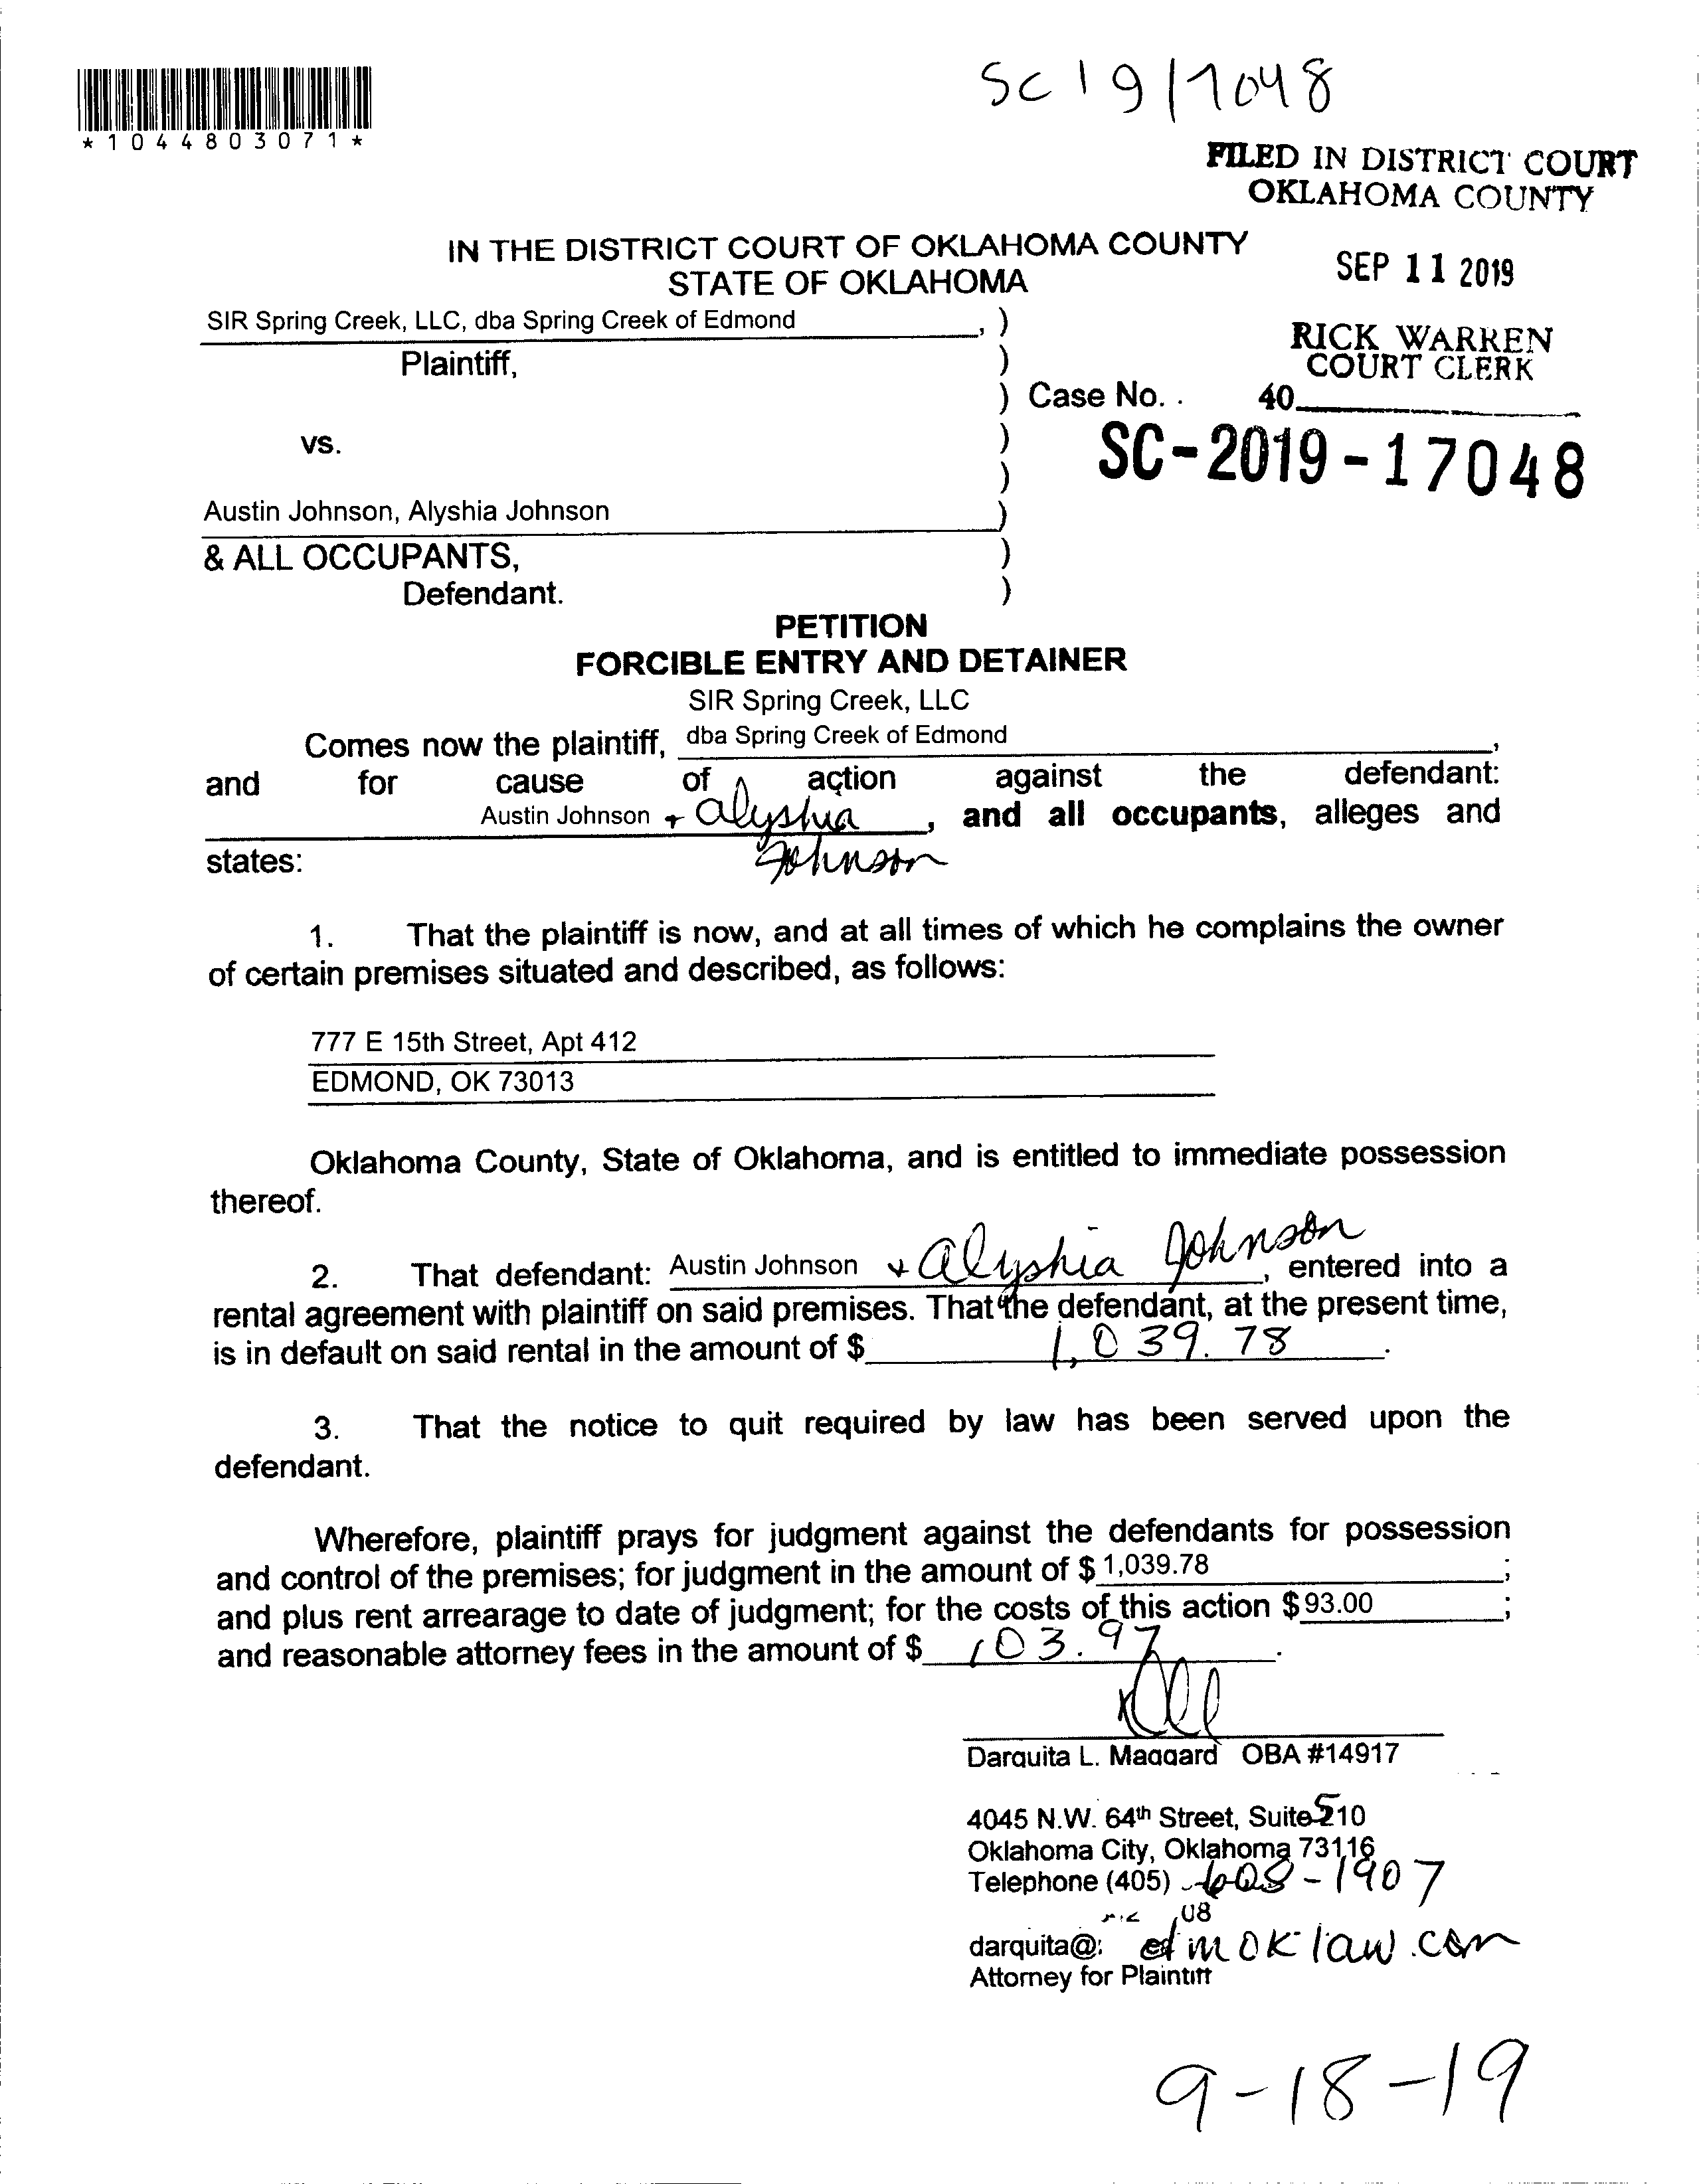 SC19 17048
*1044803071*
FILED IN DISTRICT COURT
OKLAHOMA COUNTY
IN THE DISTRICT COURT OF OKLAHOMA COUNTY
STATE OF OKLAHOMA
SEP 11 2019
SIR Spring Creek, LLC, dba Spring Creek of Edmond , )
RICK WARREN
COURT CLERK
Plaintiff, )
) Case No. . 40
vs. )
SC-2019-17048
)
Austin Johnson, Alyshia Johnson )
& ALL OCCUPANTS, )
Defendant. )
PETITION
FORCIBLE ENTRY AND DETAINER
SIR Spring Creek, LLC
Comes now the plaintiff, dba Spring Creek of Edmond ,
and for cause of action against the defendant:
Austin Johnson + Alyshia , and all occupants, alleges and
states: Johnson
1. That the plaintiff is now, and at all times of which he complains the owner
of certain premises situated and described, as follows:
777 E 15th Street, Apt 412
EDMOND, OK 73013
Oklahoma County, State of Oklahoma, and is entitled to immediate possession
thereof.
2. That defendant: Austin Johnson + Alyshia Johnson , entered into a
rental agreement with plaintiff on said premises. That the defendant, at the present time,
is in default on said rental in the amount of $ 1,039.78 .
3. That the notice to quit required by law has been served upon the
defendant.
Wherefore, plaintiff prays for judgment against the defendants for possession
and control of the premises; for judgment in the amount of $ 1,039.78 ;
and plus rent arrearage to date of judgment; for the costs of this action $ 93.00 ;
and reasonable attorney fees in the amount of $ 103.97 .
Darquita L. Maggard OBA #14917
4045 N.W. 64th Street, Suite 510
Oklahoma City, Oklahoma 73116
Telephone (405) 608-1907
08
darquita@: edmoklaw.com
Attorney for Plaintiff
9-18-19